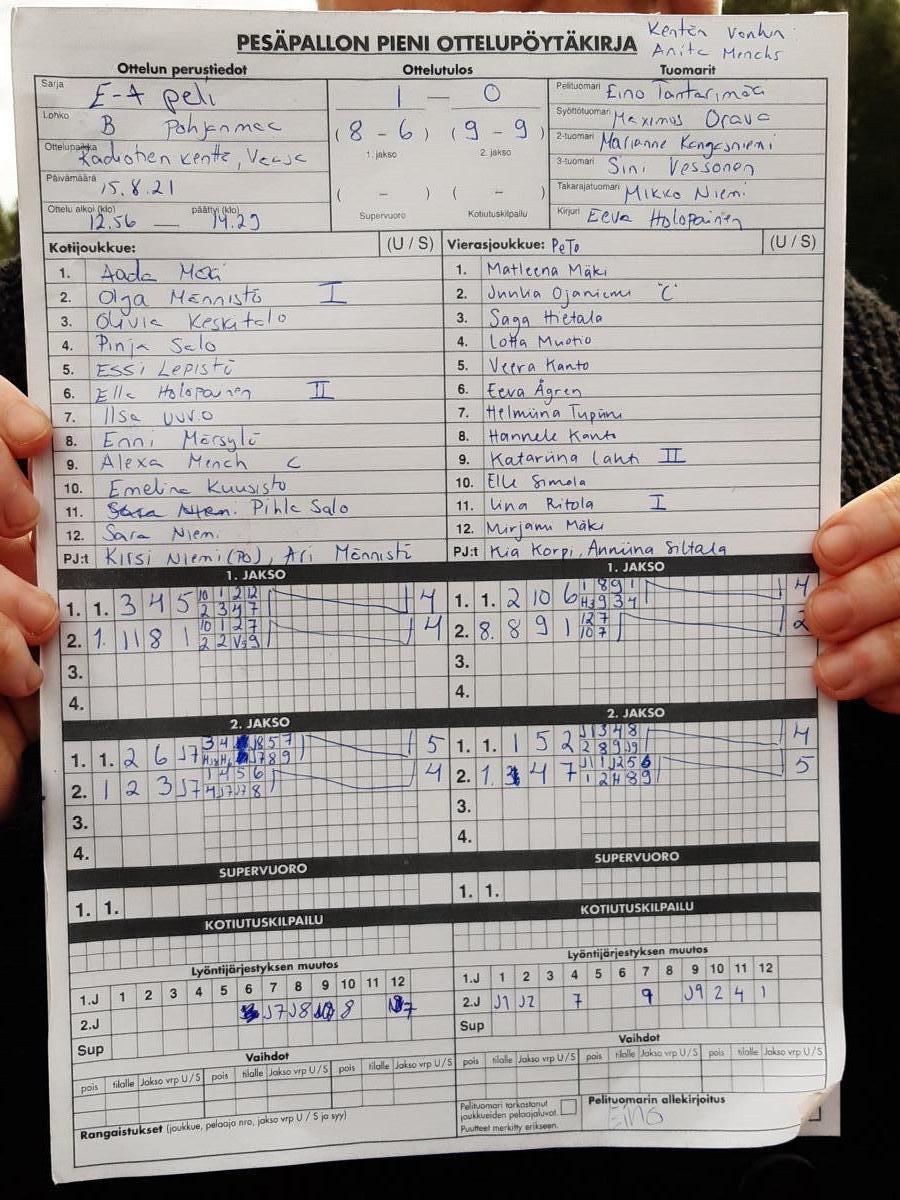 PESÄPALLON PIENI OTTELUPÖYTÄKIRJA
Kentän
Anita
Ottelun perustiedot
Ottelutulos
Tuomarit
Sarja E-4 peli
Lohko B Pohjanmaa
Ottelupaikka Radiotien kenttä, Vaasa
Päivämäärä 15.8.21
Ottelu alkoi (klo) 12.56 — päättyi (klo) 14.29
1 — 0
(8-6) (9-9)
1. jakso 2. jakso
( - ) ( - )
Supervuoro Kotiutuskilpailu
Pelituomari Eino Tantarimäki
Syöttötuomari Maximus Orava
2-tuomari Marianne Kangasniemi
3-tuomari Sini Vessonen
Takarajatuomari Mikko Niemi
Kirjuri Eeva Holopainen
Kotijoukkue: (U / S)
Vierasjoukkue: PeTo (U / S)
1. Aada Mäki
2. Olga Männistö I
3. Olivia Keskitalo
4. Pinja Salo
5. Essi Lepistö
6. Ella Holopainen II
7. Ilsa
8. Enni Märsylä
9. Alexa Mench C
10. Emelina Kuusisto
11. Pihla Salo
12. Sara Niemi
PJ:t Kirsi Niemi (PO), Ari Männistö
1. Matleena Mäki
2. Junkia Ojaniemi "C"
3. Saga Hietala
4. Lotta Muotio
5. Veera Kanto
6. Eeva Ågren
7. Helmiina
8. Hannele Kanto
9. Katariina Lahti II
10. Elle Simola
11. Iina Ritola I
12. Mirjami Mäki
PJ:t Kia Korpi, Anniina Siltala
1. JAKSO
1. 1. 3 4 5 4
2. 1. 11 8 1 4
3.
4.
1. JAKSO
1. 1. 2 10 6 4
2. 8. 8 9 1 2
3.
4.
2. JAKSO
1. 1. 2 6 J7 5
2. 1 2 3 J7 4
3.
4.
2. JAKSO
1. 1. 1 5 2 4
2. 1. 4 7 5
3.
4.
SUPERVUORO
1. 1.
SUPERVUORO
1. 1.
KOTIUTUSKILPAILU
KOTIUTUSKILPAILU
Lyöntijärjestyksen muutos
1.J 1 2 3 4 5 6 7 8 9 10 11 12
2.J J7 J8 8
Sup
Lyöntijärjestyksen muutos
1.J 1 2 3 4 5 6 7 8 9 10 11 12
2.J J1 J2 7 9 J9 2 4 1
Sup
Vaihdot
pois tilalle Jakso vrp U / S pois tilalle Jakso vrp U / S pois tilalle Jakso vrp U / S
Vaihdot
pois tilalle Jakso vrp U / S pois tilalle Jakso vrp U / S pois tilalle Jakso vrp U / S
Rangaistukset (joukkue, pelaaja nro, jakso vrp U / S ja syy)
Pelituomari tarkastanut
joukkueiden pelaajaluvat.
Puutteet merkitty erikseen.
Pelituomarin allekirjoitus